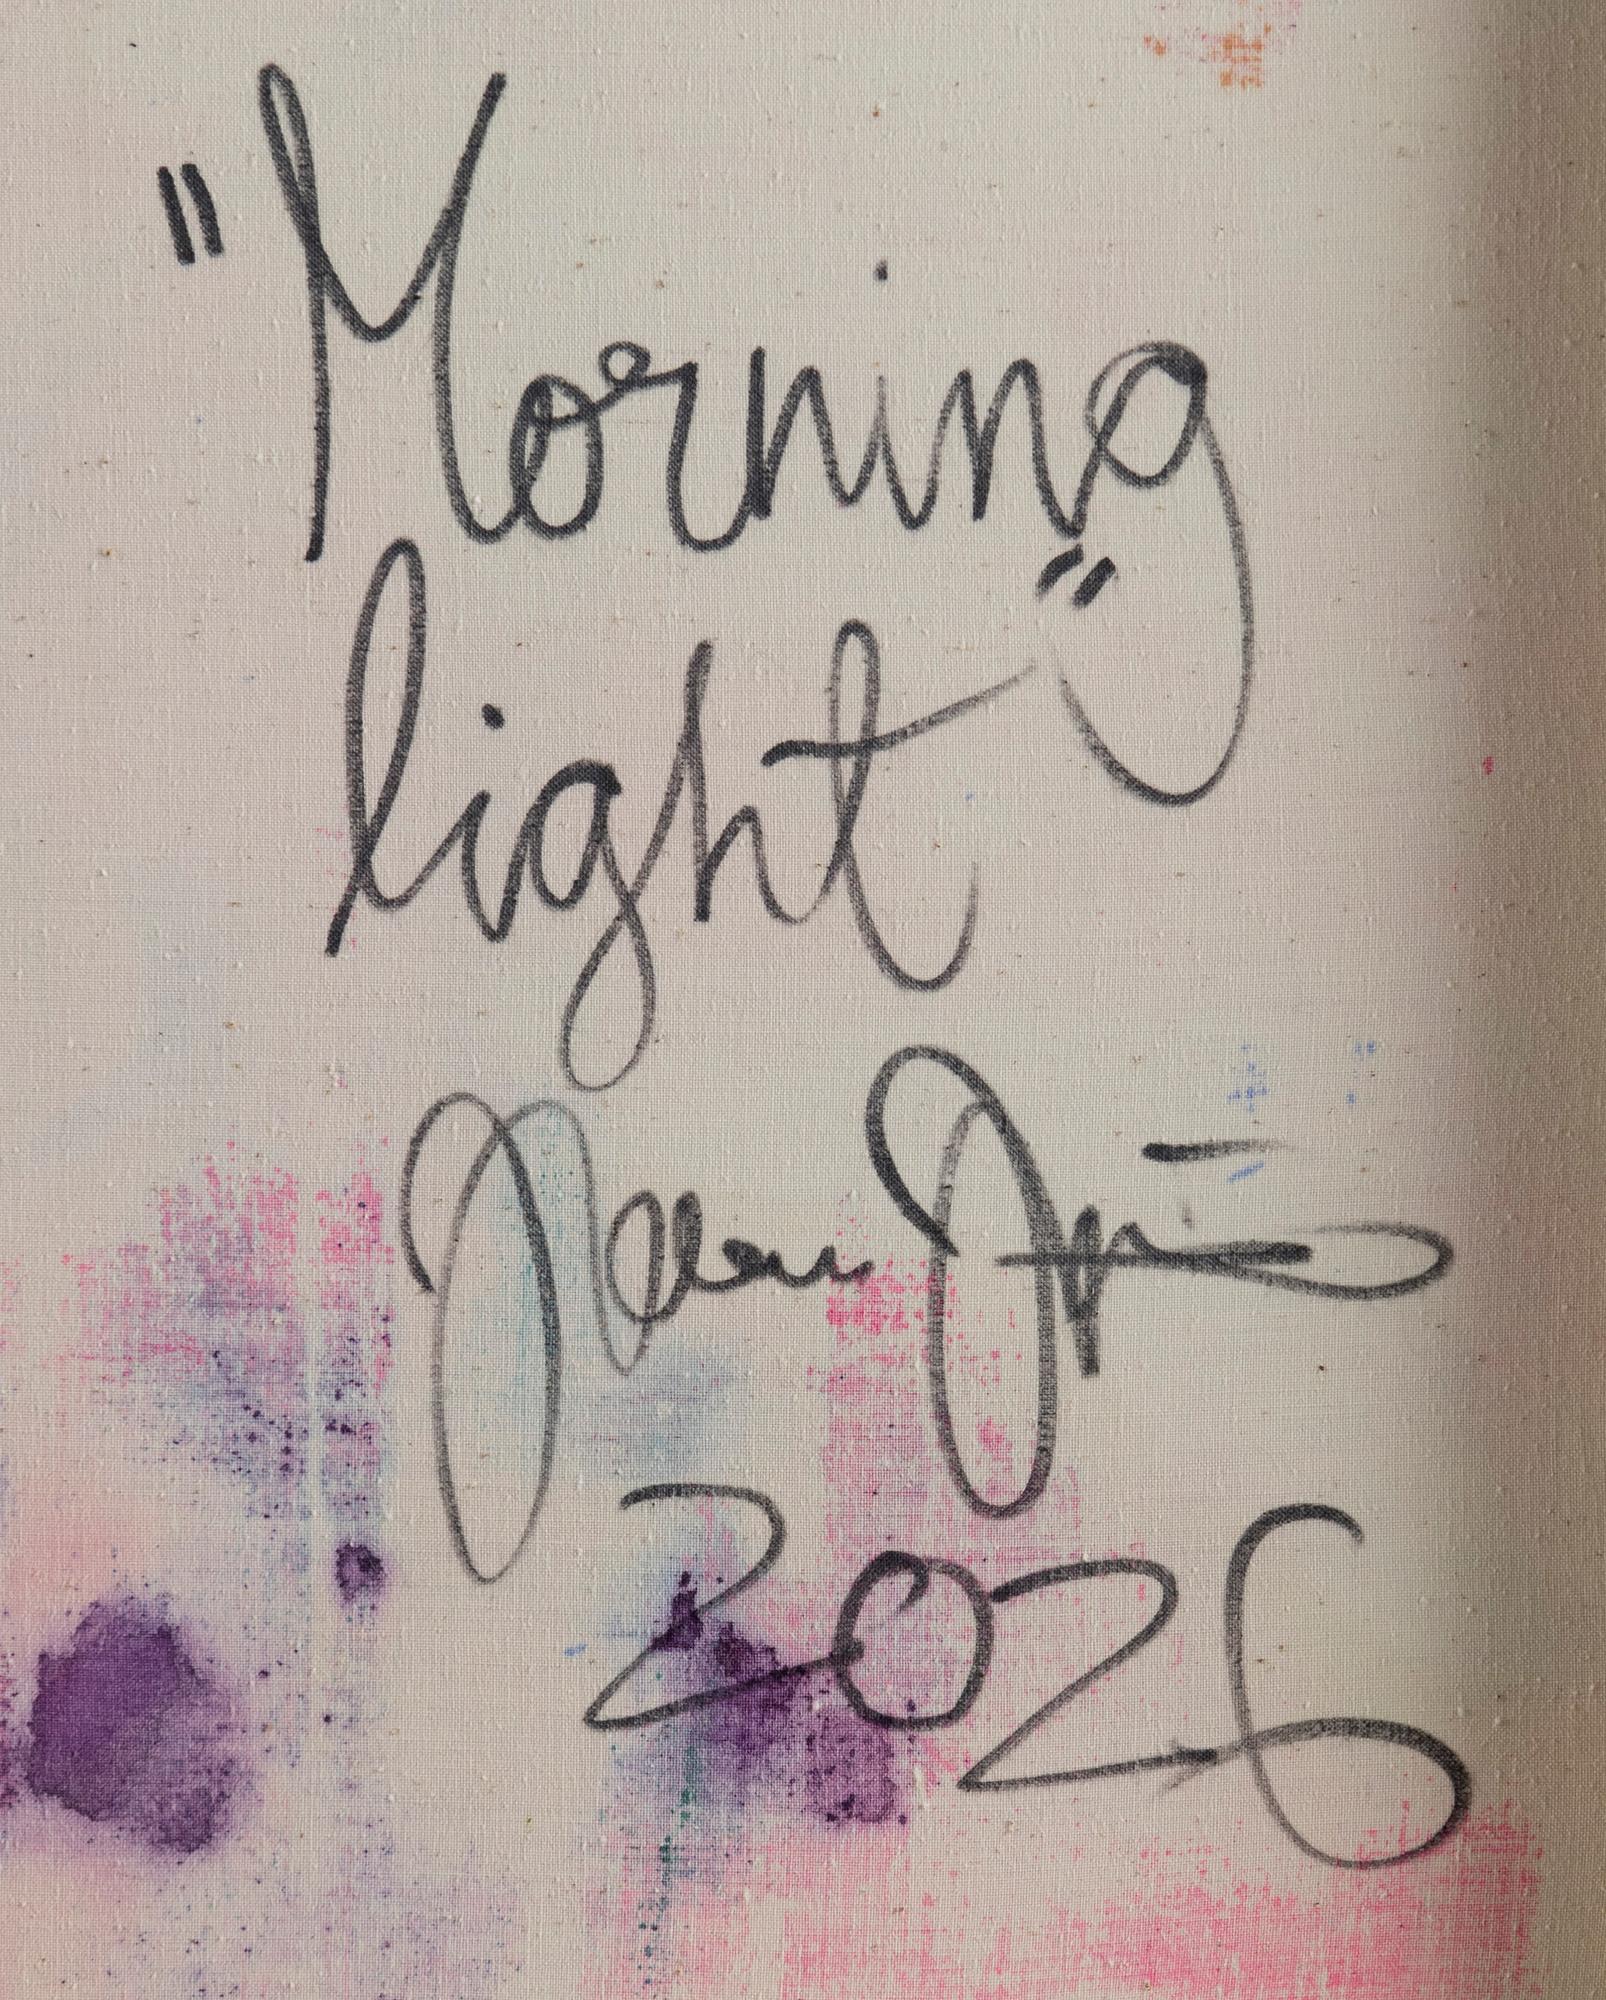 "Morning
light"
2026